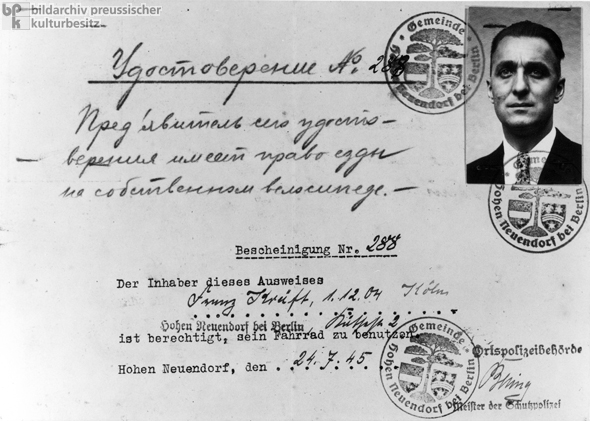 bpk bildarchiv preussischer
kulturbesitz
Удостоверение № 288
Gemeinde
Hohen Neuendorf bei Berlin
Пред'явитель сего удосто-
верения имеет право езды
на собственном велосипеде.—
Gemeinde
Hohen Neuendorf bei Berlin
Bescheinigung Nr. 288
Der Inhaber dieses Ausweises
Franz Kraft, 1.12.04 Köln
Hohen Neuendorf bei Berlin, 2
ist berechtigt, sein Fahrrad zu benutzen.
Hohen Neuendorf, den 24.7.45
Gemeinde
Hohen Neuendorf bei Berlin
Ortspolizeibehörde
Meister der Schutzpolizei